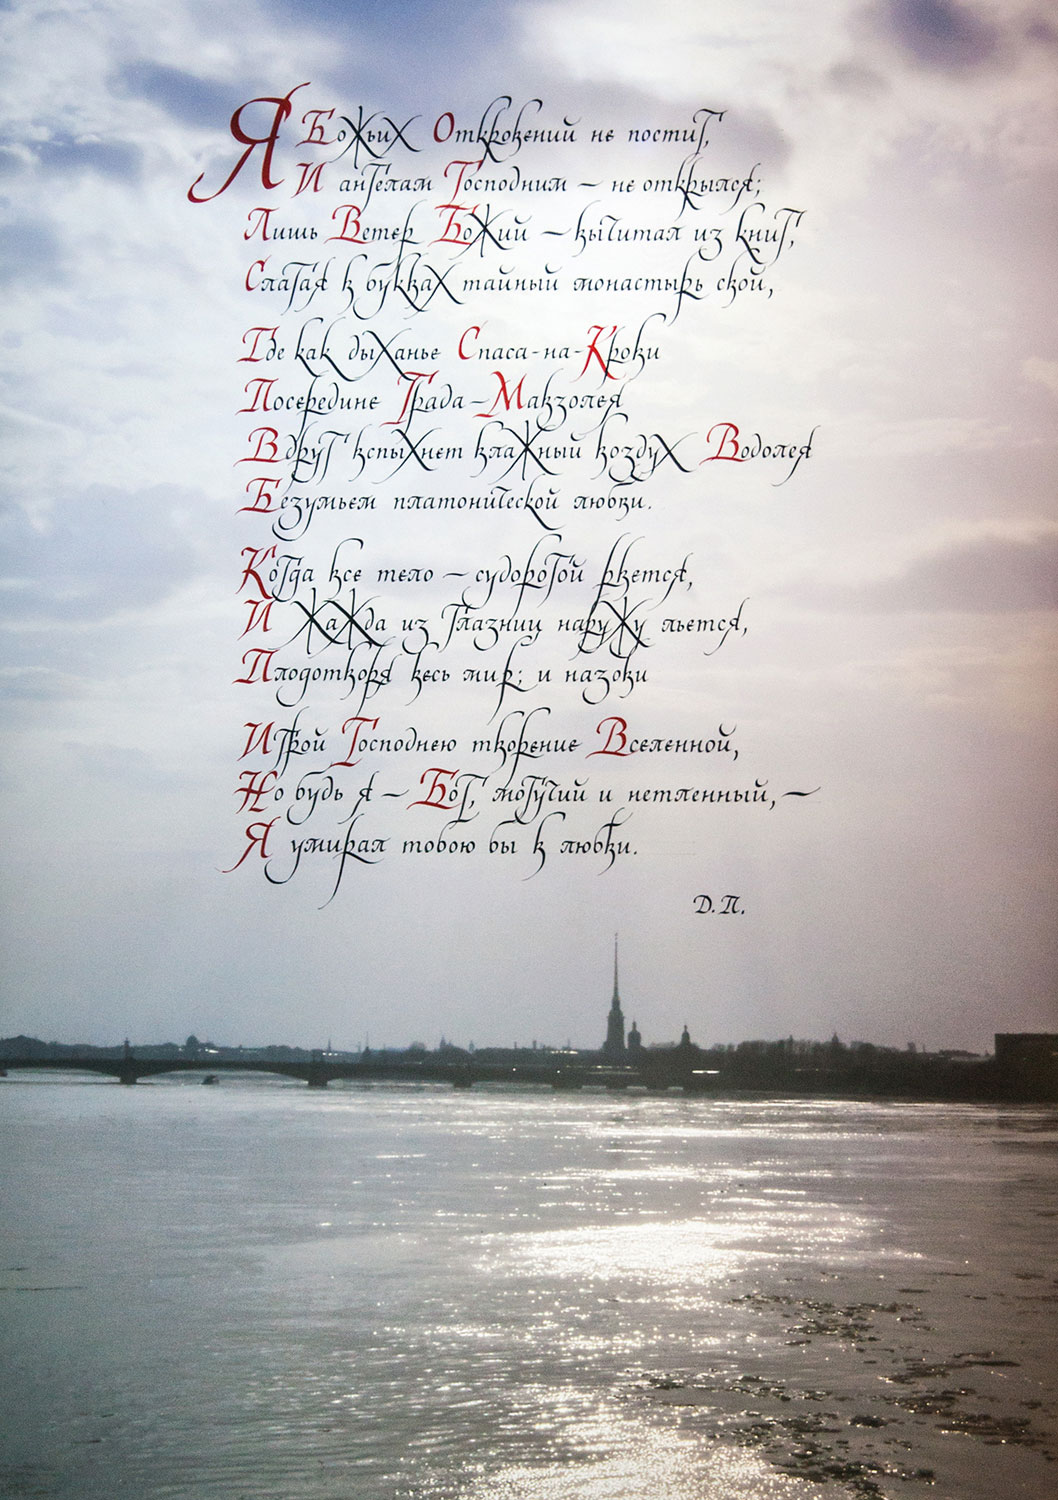 Я Божьих Откровений не постиг,
И ангелам Господним – не открылся;
Лишь Ветер Божий – вычитал из книг,
Слагая в буквах тайный монастырь свой,
Где как дыханье Спаса-на-Крови
Посередине Града-Мавзолея
Вдруг вспыхнет влажный воздух Водолея
Безумьем платонической любви.
Когда все тело – судорогой рвется,
И Жажда из глазниц наружу льется,
Плодотворя весь мир; и назови
Игрой Господнею творение Вселенной,
Но будь я – Бог, могучий и нетленный, –
Я умирал тобою бы в любви.
Д.П.